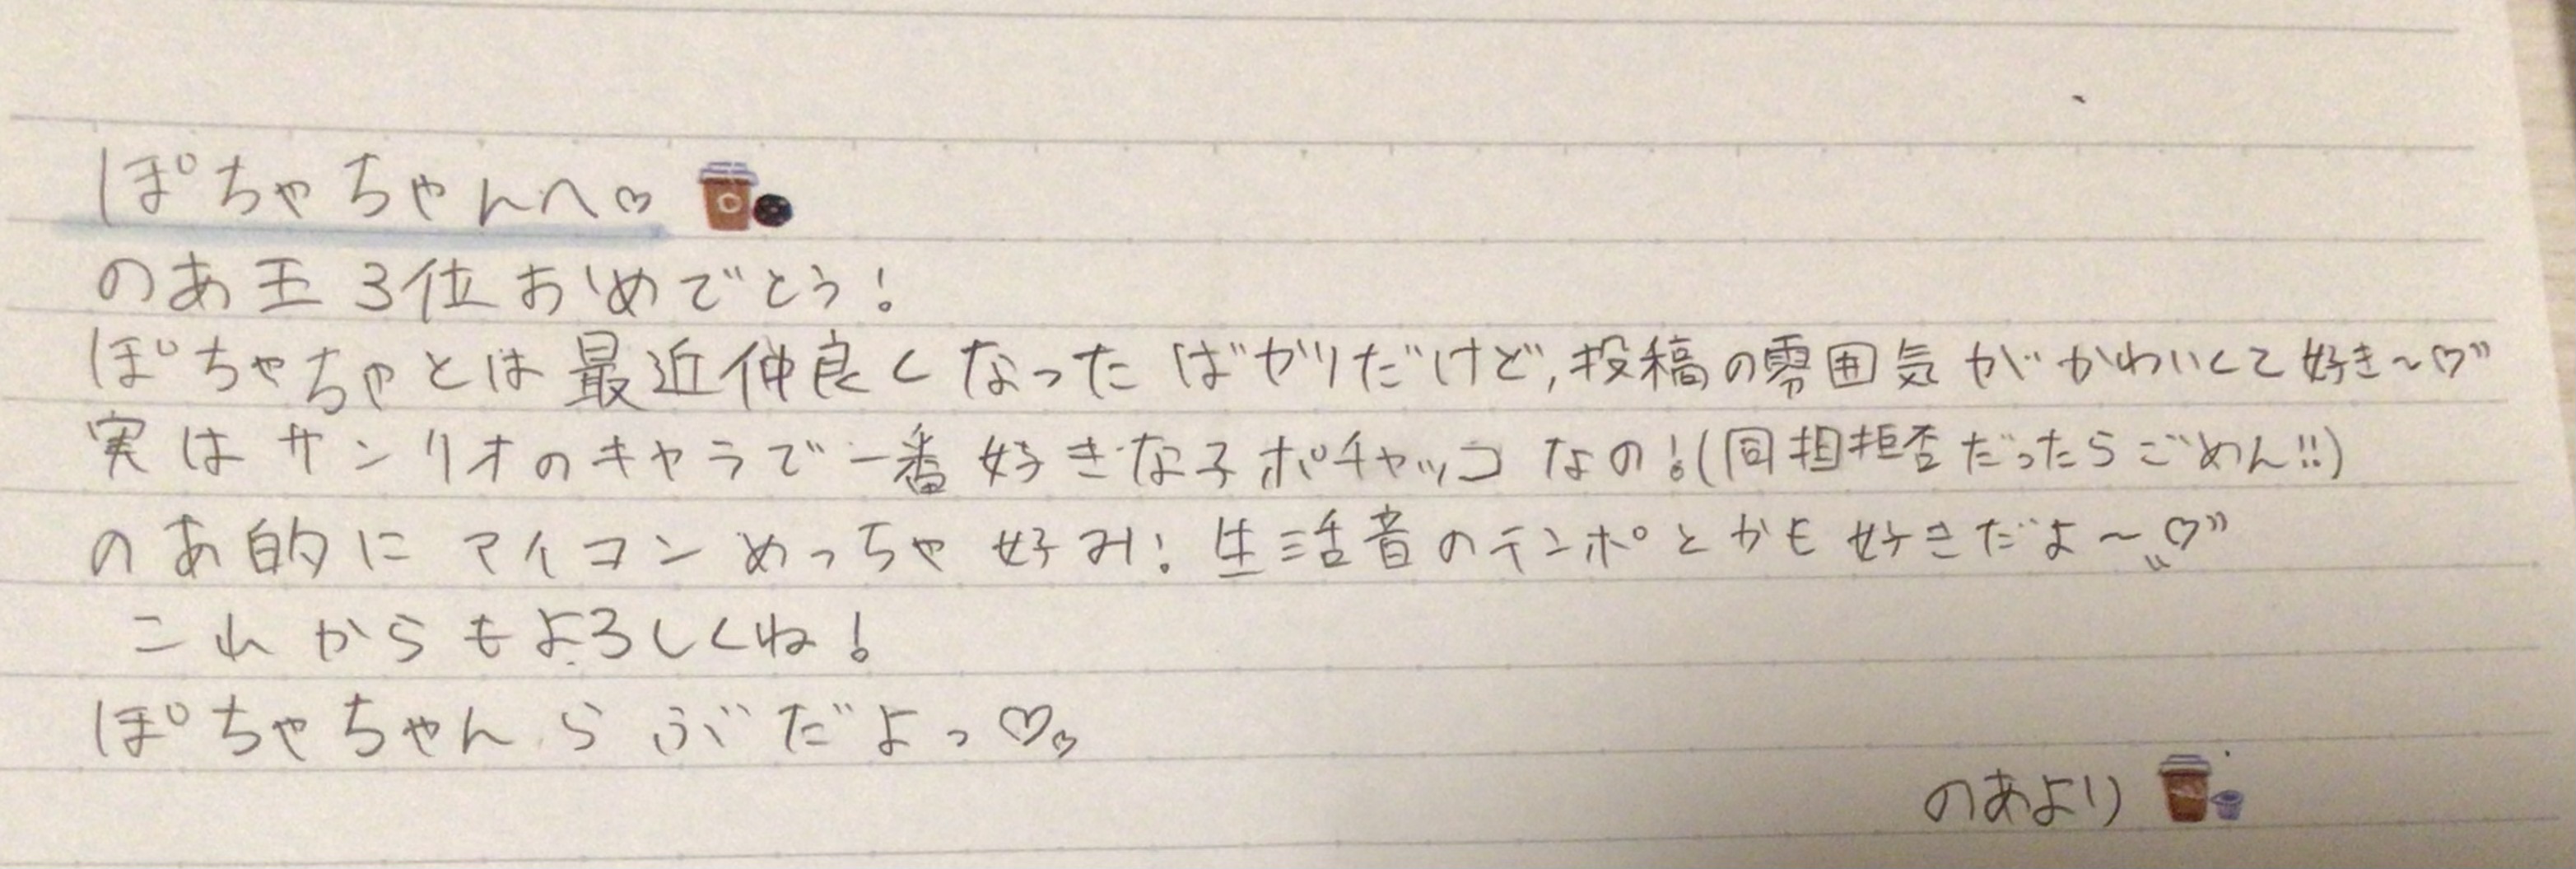 ぽちゃちゃんへ♡
のあ王3位おめでとう！
ぽちゃちゃとは最近仲良くなったばかりだけど,投稿の雰囲気がかわいくて好き〜♡”
実はサンリオのキャラで一番好きな子ポチャッコなの！(同担拒否だったらごめん!!)
のあ的にアイコンめっちゃ好み！生活音のテンポとかも好きだよ〜♡”
これからもよろしくね！
ぽちゃちゃんらぶだよっ♡♡
のあより